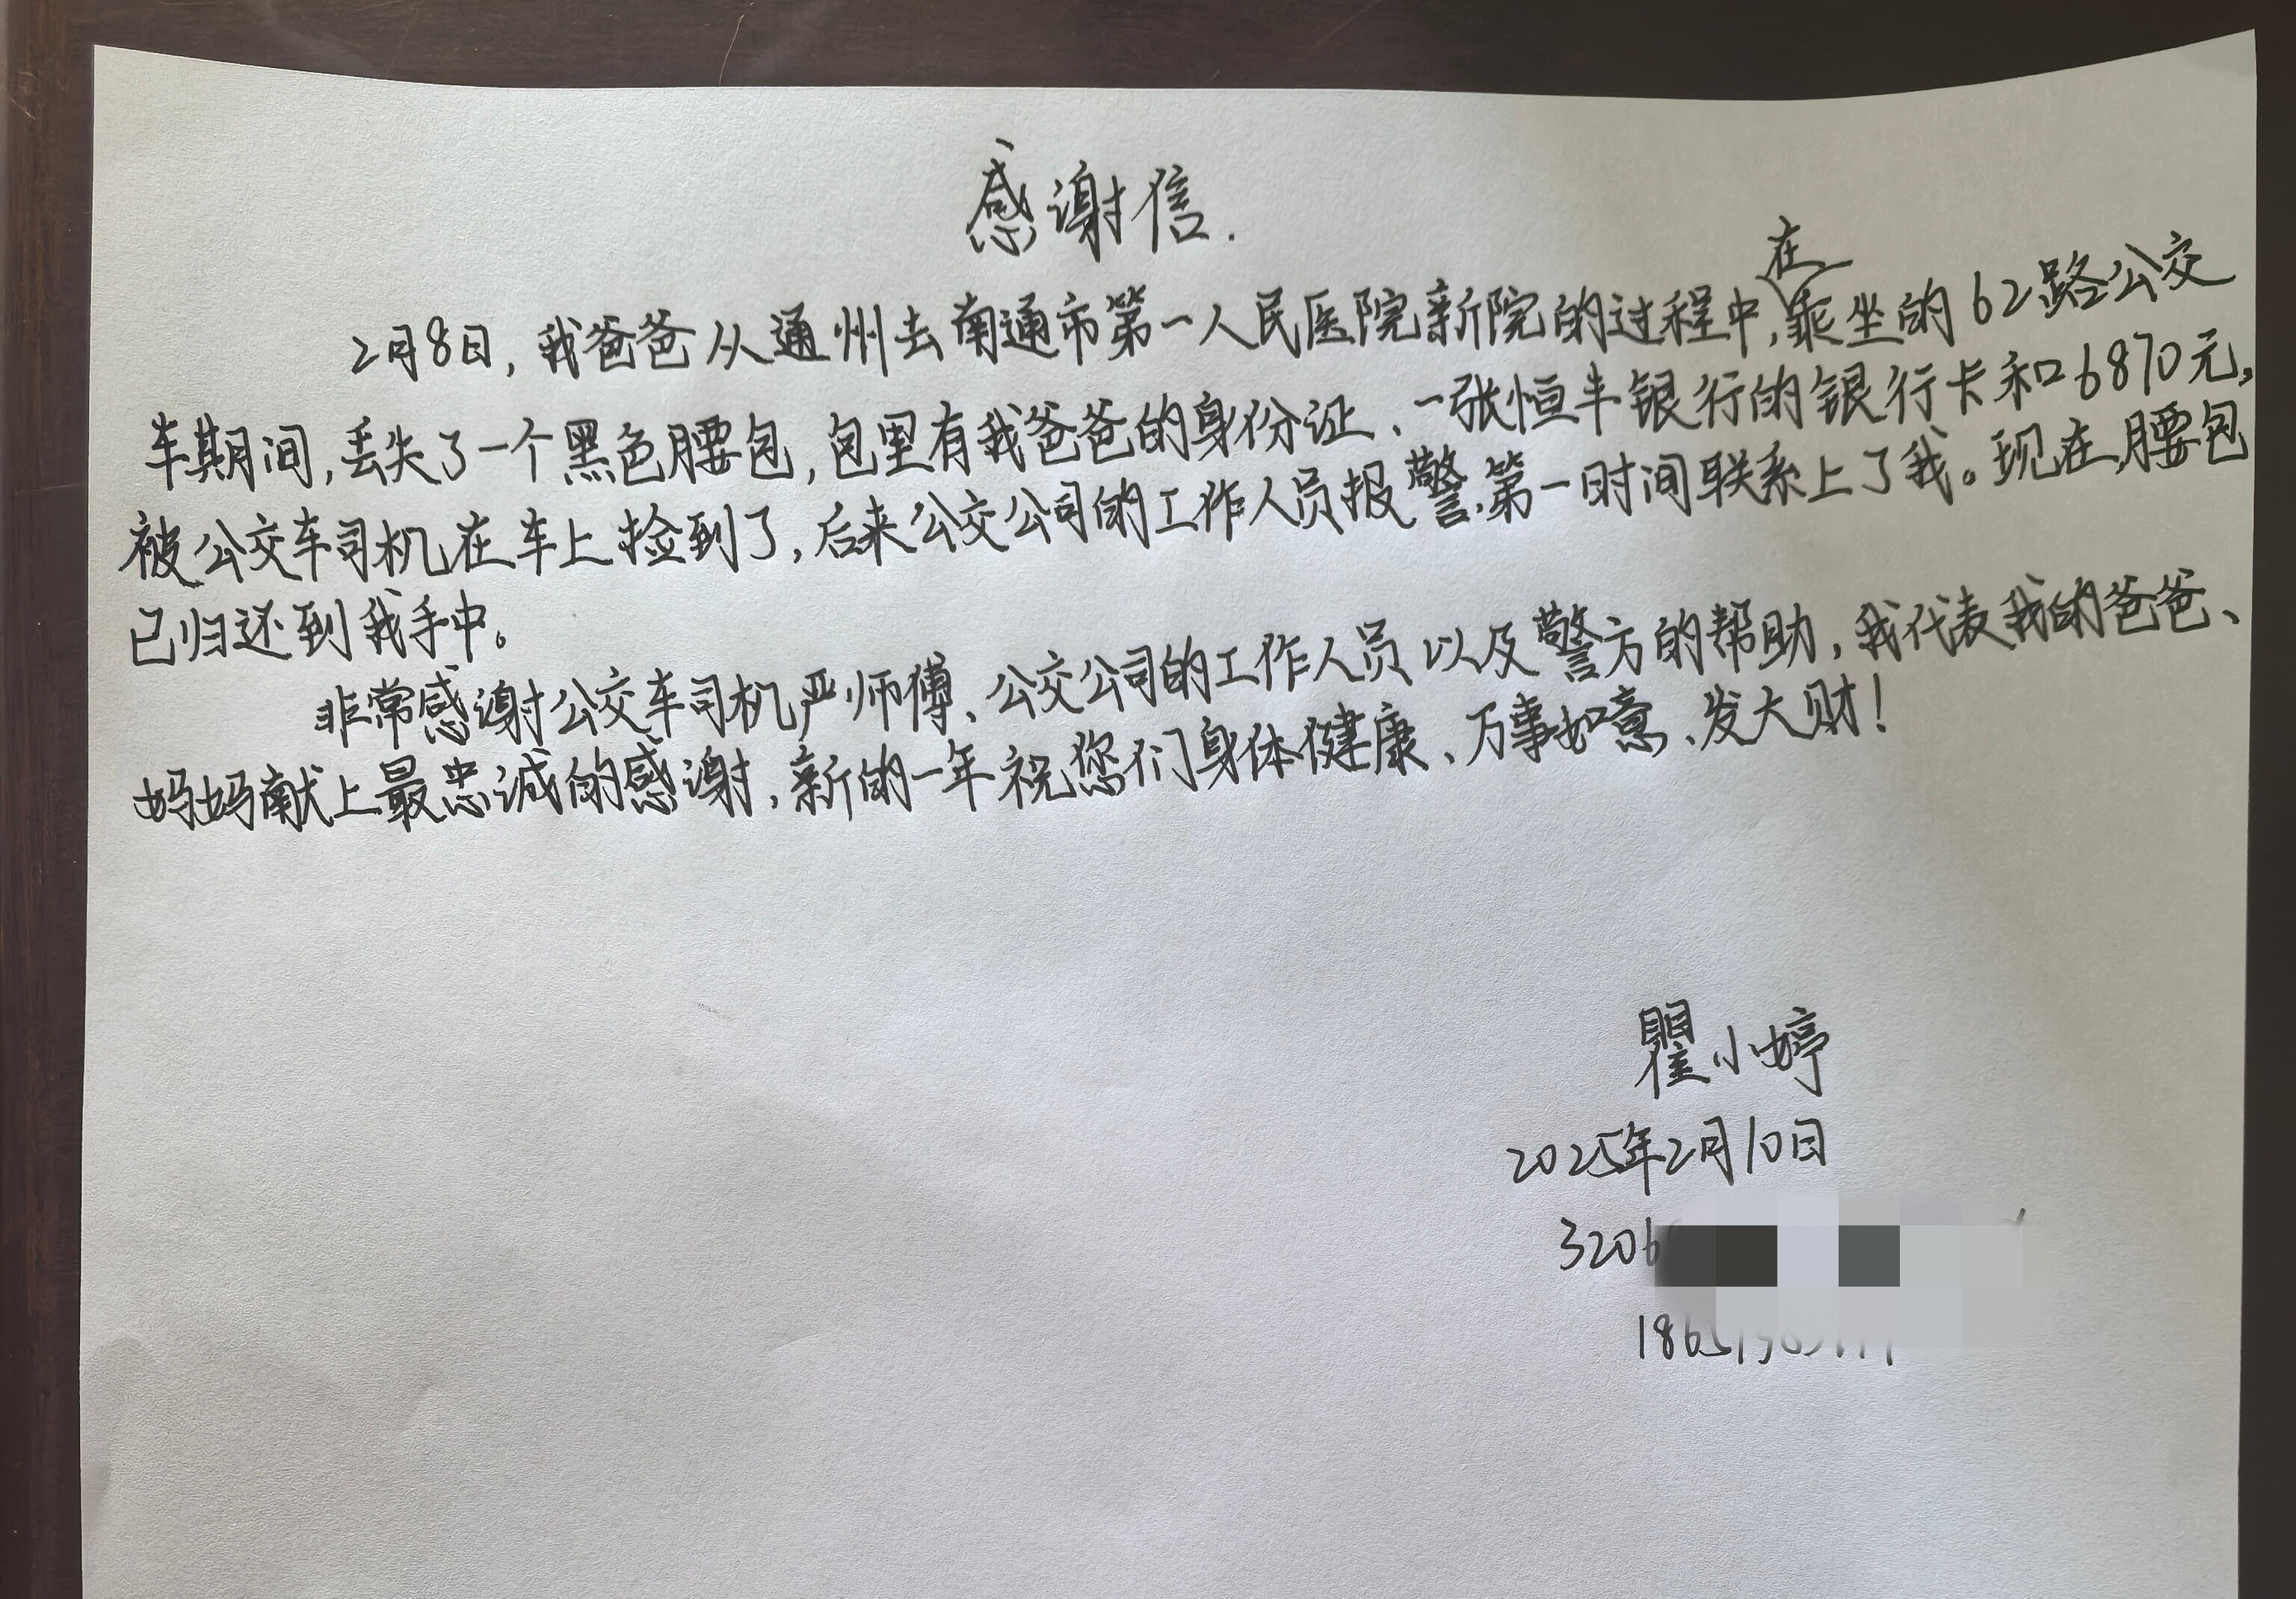 感谢信.
2月8日，我爸爸从通州去南通市第一人民医院新院的过程中，在乘坐的62路公交
车期间，丢失了一个黑色腰包，包里有我爸爸的身份证、一张恒丰银行的银行卡和6870元，
被公交车司机在车上捡到了，后来公交公司的工作人员报警，第一时间联系上了我。现在，腰包
已归还到我手中。
非常感谢公交车司机严师傅、公交公司的工作人员以及警方的帮助，我代表我的爸爸、
妈妈献上最忠诚的感谢，新的一年祝您们身体健康、万事如意、发大财！
瞿小婷
2025年2月10日